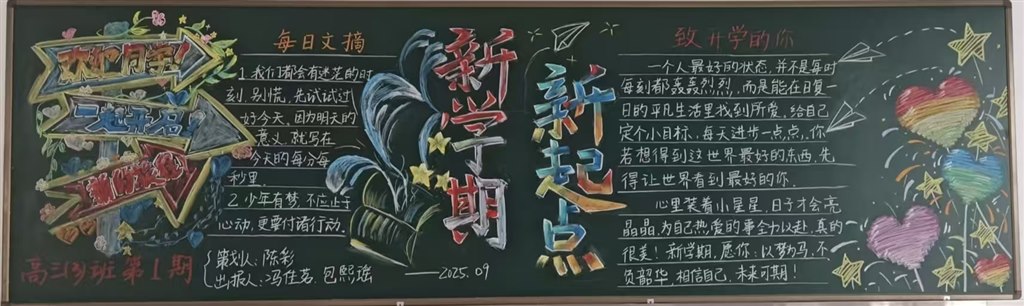 欢迎同学!
一起开启
新的旅程
每日文摘
1.我们都会有迷茫的时
刻,别慌,先试试过
好今天,因为明天的
意义,就写在
今天的每分每
秒里.
2.少年有梦,不应止于
心动,更要付诸行动.
高三(3)班第1期
策划人:陈彩
出报人:冯佳茗、包熙瑶
——2025.09
新学期
新起点
致开学的你
一个人最好的状态,并不是每时
每刻都轰轰烈烈,而是能在日复一
日的平凡生活里找到所爱,给自己
定个小目标、每天进步一点点,你
若想得到这世界最好的东西,先
得让世界看到最好的你.
心里装着小星星,日子才会亮
晶晶,为自己热爱的事全力以赴,真的
很美!新学期,愿你:以梦为马,不
负韶华,相信自己,未来可期!